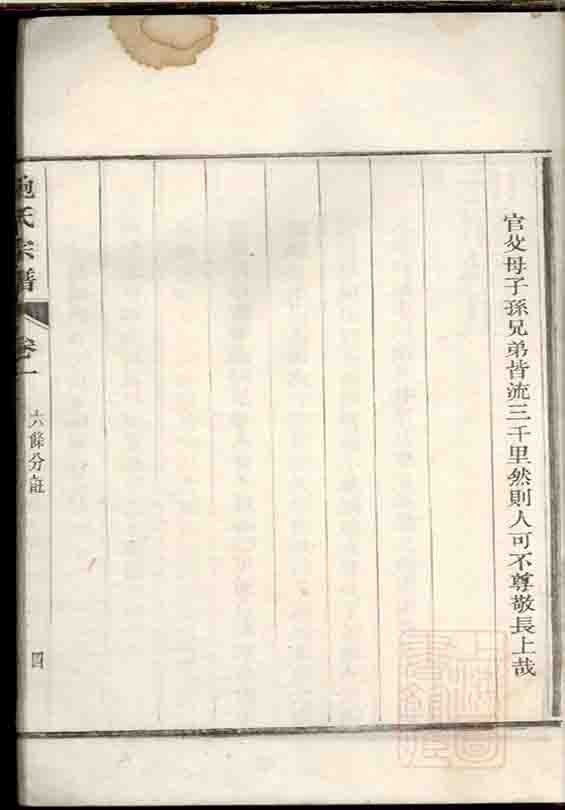 官父母子孫兄弟皆流三千里然則人可不尊敬長上哉
鮑氏宗譜
卷一
六條分註
四
上海圖書館藏